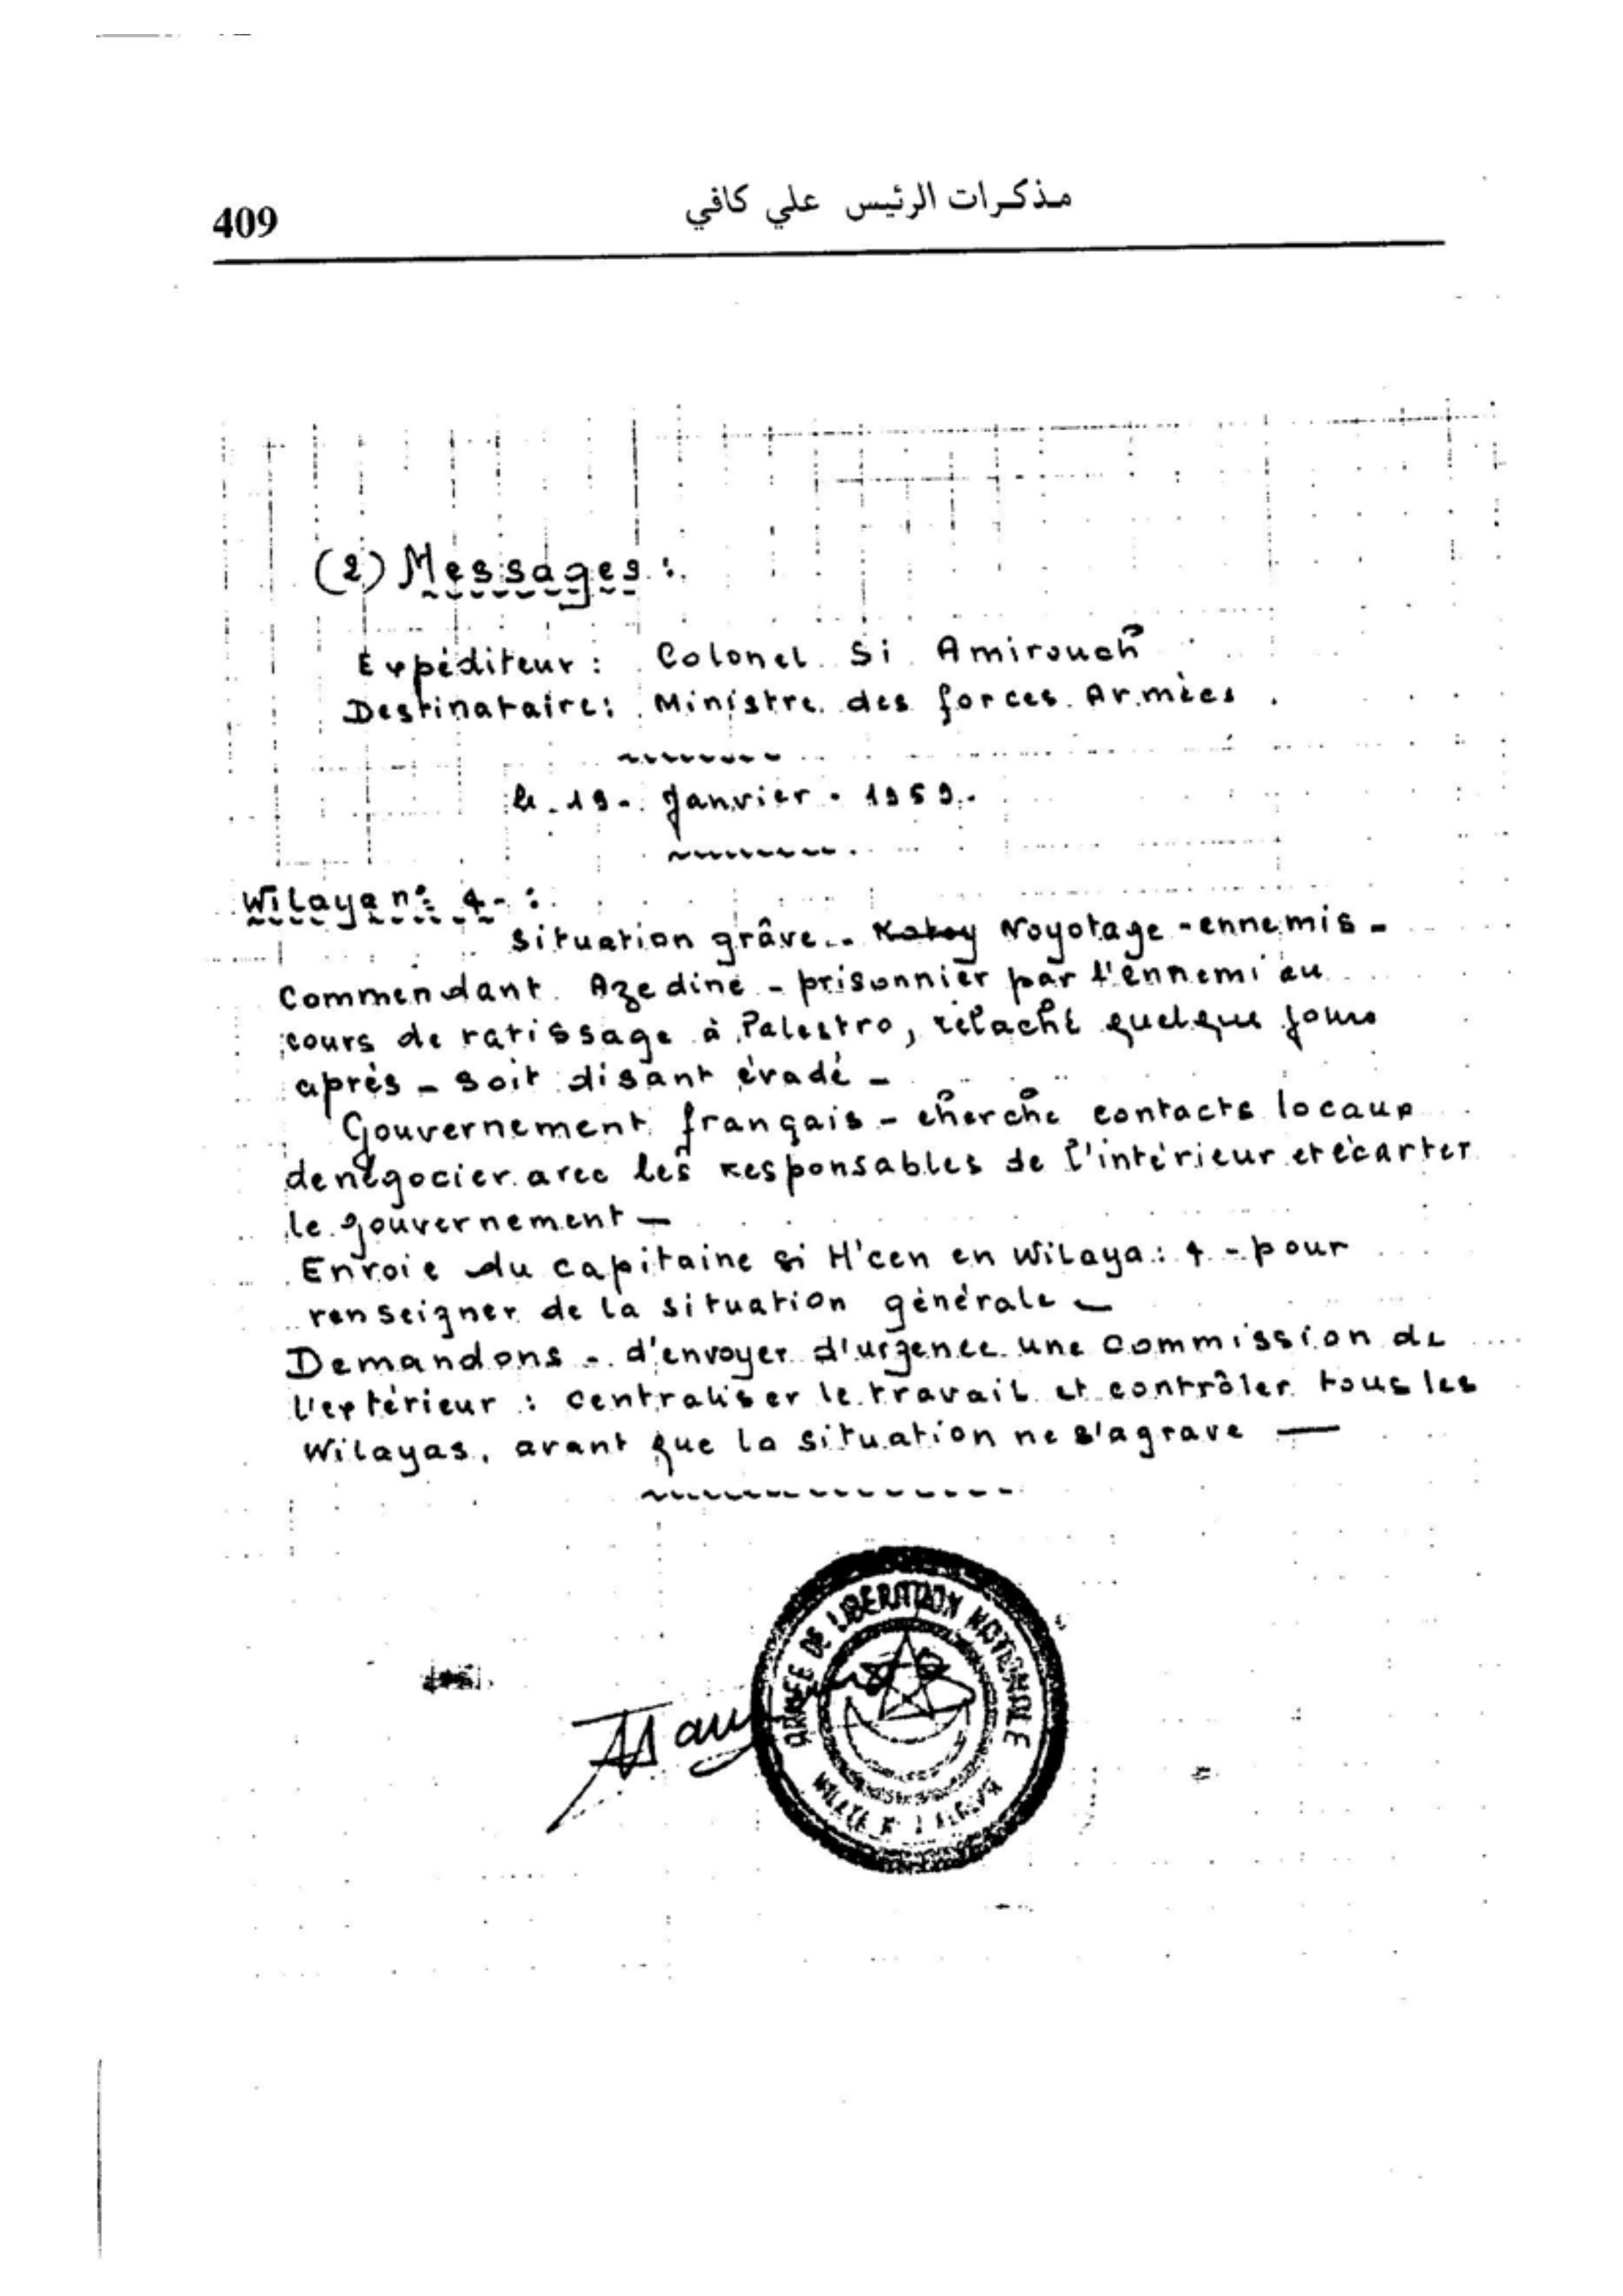 مذكرات الرئيس علي كافي
409
(2) Messages :
Expéditeur : Colonel Si Amirouch
Destinataire : Ministre des forces Armèes .
le 19 - Janvier - 1959.
Wilaya n° 4 - :
situation grâve .. Noyotage - ennemis -
Commendant Azedine - prisonnier par l'ennemi au
cours de ratissage à Palestro, relaché quelque jours
après - soit disant évadé -
Gouvernement français - cherche contacts locaux
de négocier avec les Responsables de l'intérieur et écarter
le gouvernement -
Envoie du capitaine si H'cen en Wilaya : 4 - pour
renseigner de la situation générale -
Demandons - d'envoyer d'urgence une Commission de
l'extérieur : centraliser le travail et contrôler tous les
Wilayas, avant que la situation ne s'agrave —
ARMEE DE LIBERATION NATIONALE